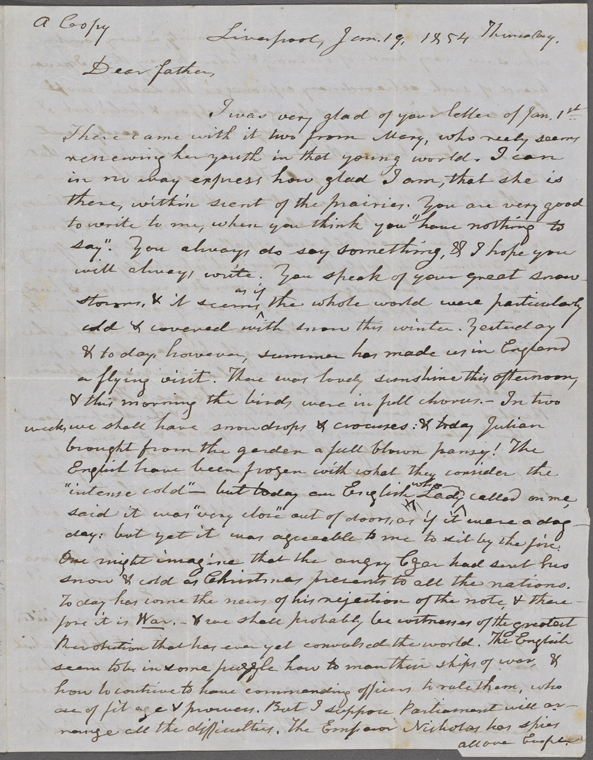 A Copy
Liverpool, Jan. 19, 1854 Thursday.
Dear father,
I was very glad of your letter of Jan. 1st
There came with it two from Mary, who really seems
renewing her youth in that young world. I can
in no way express how glad I am, that she is
there, within scent of the prairies. You are very good
to write to me, when you think you "have nothing to
say". You always do say something, & I hope you
will always write. You speak of your great snow
storms, & it seems as if the whole world were particularly
cold & covered with snow this winter. Yesterday
& today, however, summer has made us in England
a flying visit. There was lovely sunshine this afternoon,
& this morning the birds were in full chorus. - In two
weeks we shall have snowdrops & crocuses: & today Julian
brought from the garden a full blown pansy! The
English have been frozen with what they consider the
"intense cold" - but today an English Lady who called on me,
said it was "very close" out of doors, as if it were a dog-
day: but yet it was agreeable to me to sit by the fire.
One might imagine that the angry Czar had sent his
snow & cold as Christmas presents to all the nations.
Today has come the news of his rejection of the note, & there-
fore it is War. - & we shall probably be witnesses of the greatest
Revolution that has ever yet convulsed the world. The English
seem to be in some puzzle how to man their ships of war, &
how to contrive to have commanding officers to rule them, who
are of fit age & prowess. But I suppose Parliament will ar-
range all the difficulties. The Emperor Nicholas has spies
all over Europe.